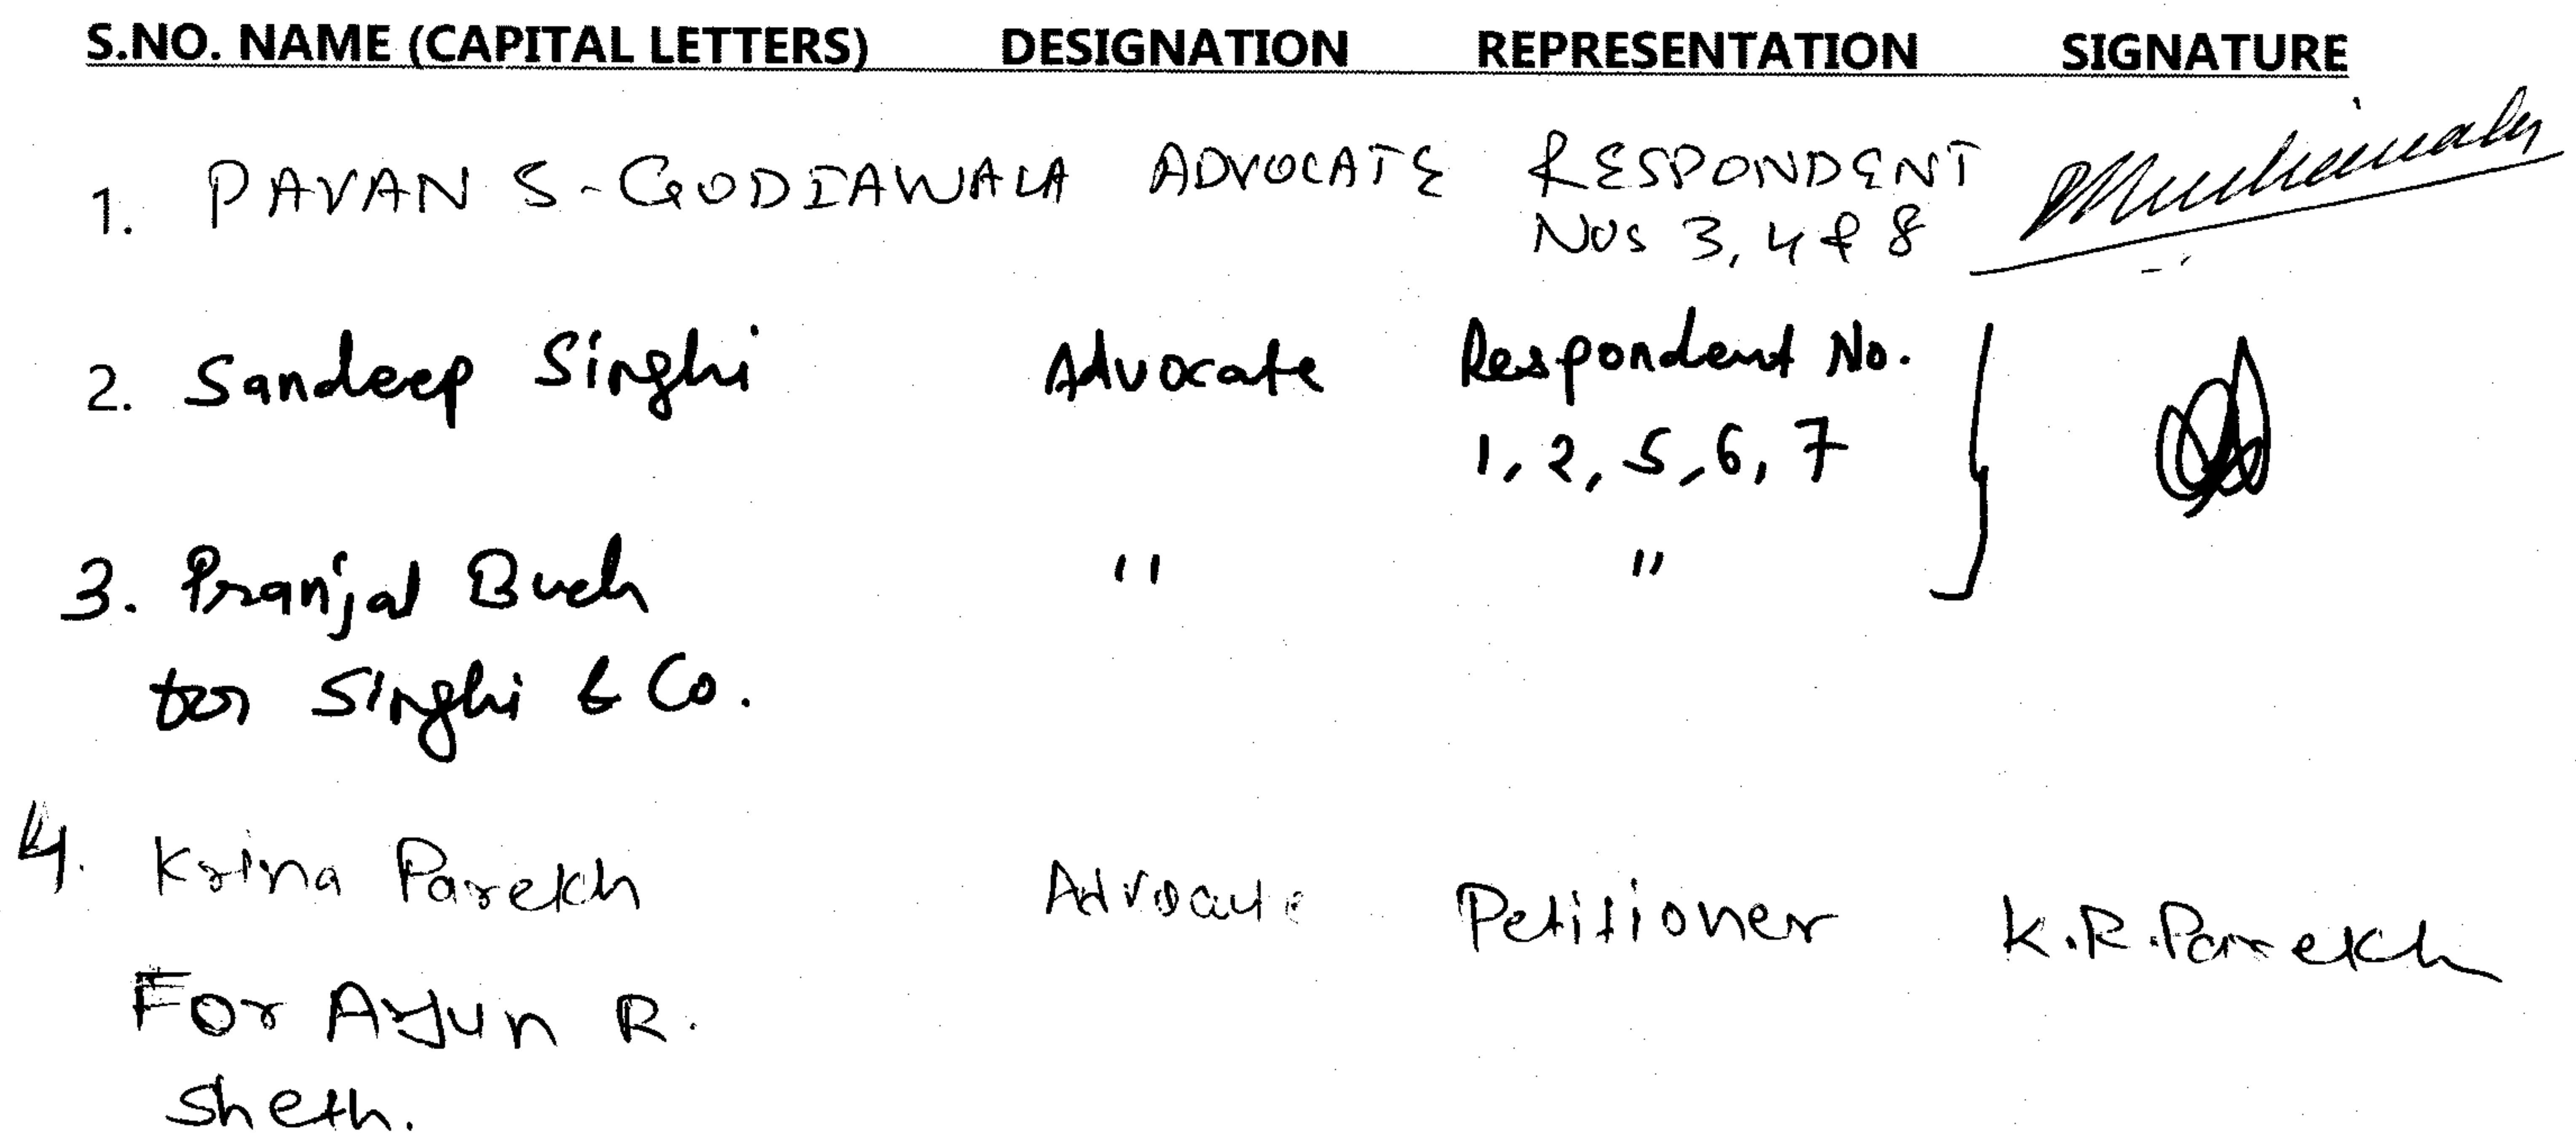 S.NO. NAME (CAPITAL LETTERS) DESIGNATION REPRESENTATION SIGNATURE
1. PAVAN S-GODIAWALA ADVOCATE RESPONDENT
Nos 3, 4 & 8
2. Sandeep Singhi Advocate Respondent No.
1, 2, 5, 6, 7
3. Pranjal Buch " "
for Singhi & Co.
4. Krina Parekh Advocate Petitioner K.R.Parekh
For Arjun R.
Sheth.